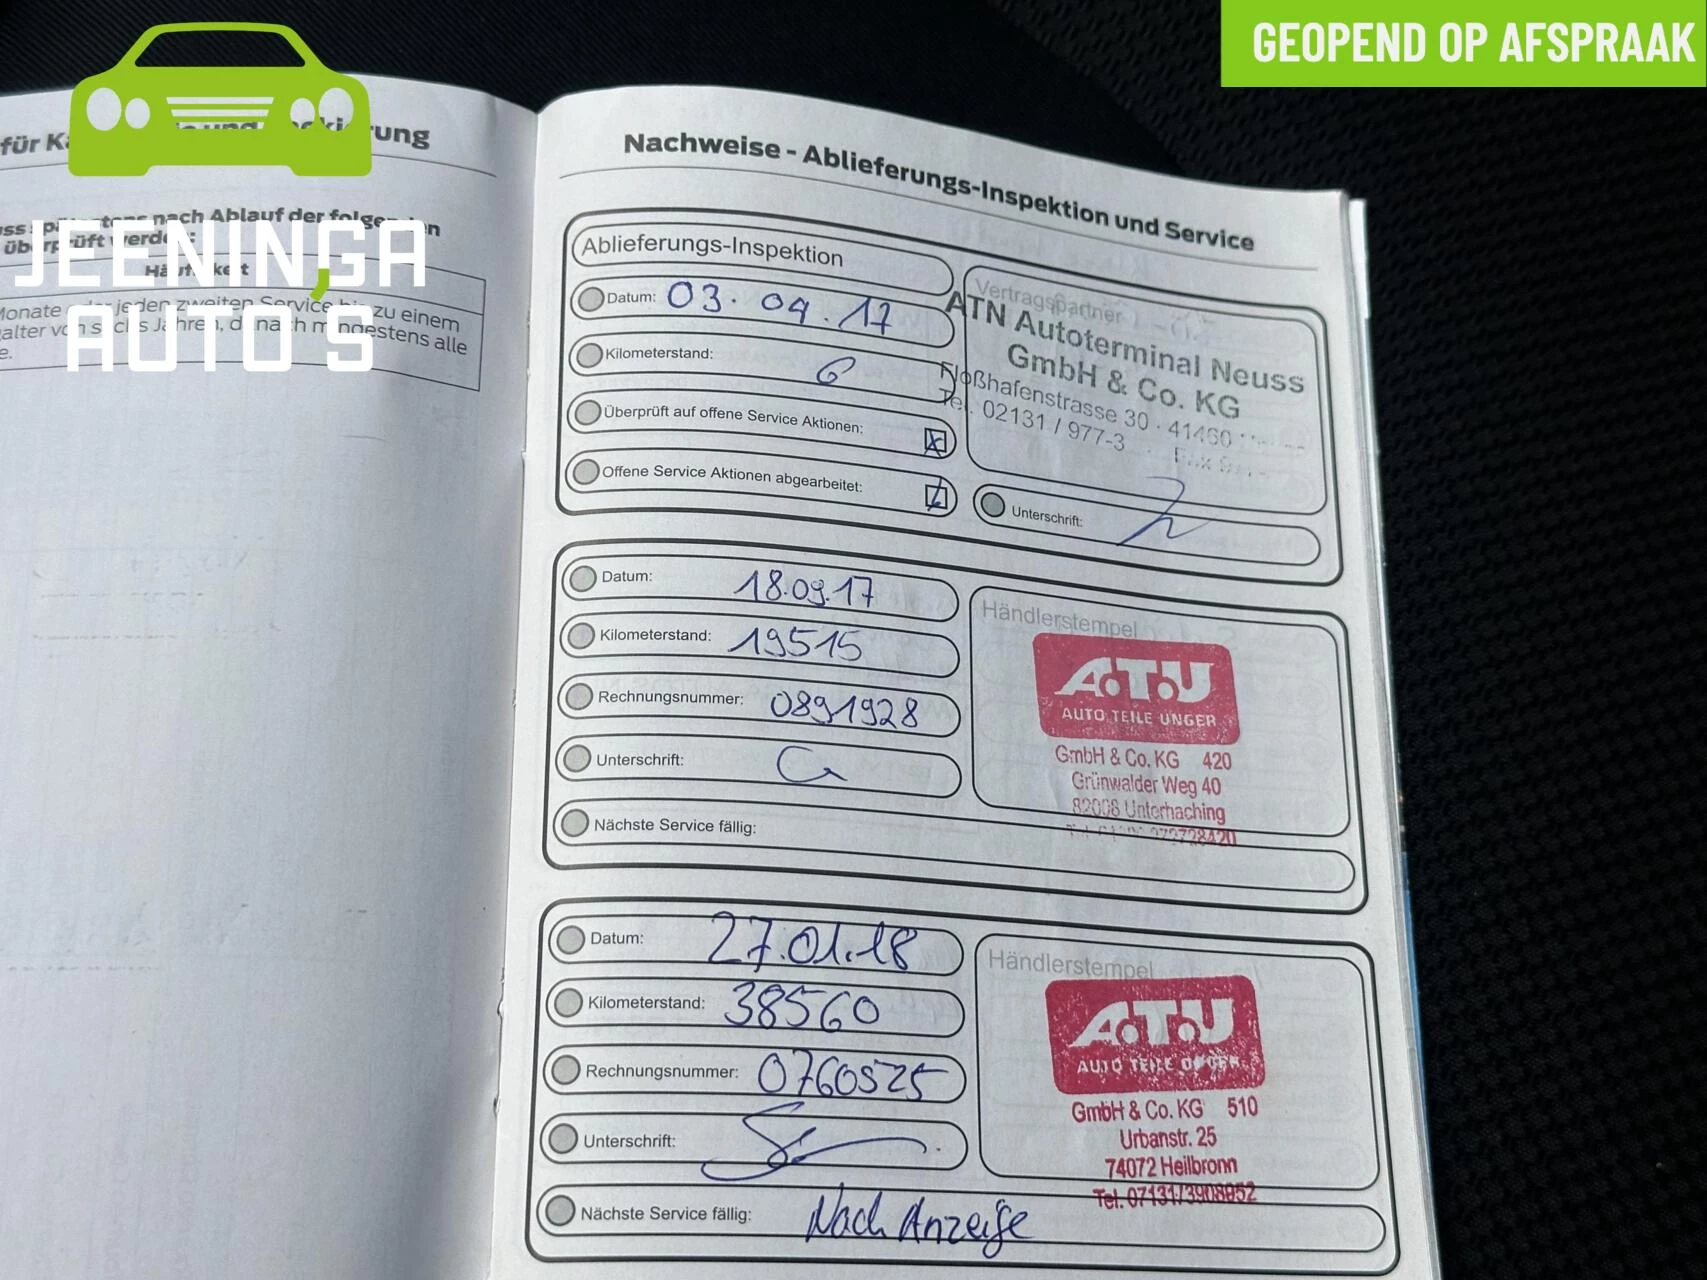 GEOPEND OP AFSPRAAK
JEENINGA
AUTO'S
für
nach Ablauf der
überprüft
jeden zweiten Service zu einem
mindestens alle
Nachweise - Ablieferungs-Inspektion und Service
Ablieferungs-Inspektion
Datum: 03.04.17
Kilometerstand: 6
Überprüft auf offene Service Aktionen:
Offene Service Aktionen abgearbeitet:
Vertragspartner
ATN Autoterminal Neuss
GmbH & Co. KG
Floßhafenstrasse 30 · 41460
Tel. 02131 / 977-3
Unterschrift:
Datum: 18.09.17
Kilometerstand: 19515
Rechnungsnummer: 0891928
Unterschrift:
Nächste Service fällig:
Händlerstempel
A.T.U
AUTO TEILE UNGER
GmbH & Co. KG 420
Grünwalder Weg 40
82008 Unterhaching
Datum: 27.01.18
Kilometerstand: 38560
Rechnungsnummer: 0760525
Unterschrift:
Nächste Service fällig: Nach Anzeige
Händlerstempel
A.T.U
AUTO TEILE UNGER
GmbH & Co. KG 510
Urbanstr. 25
74072 Heilbronn
Tel. 07131/3908952